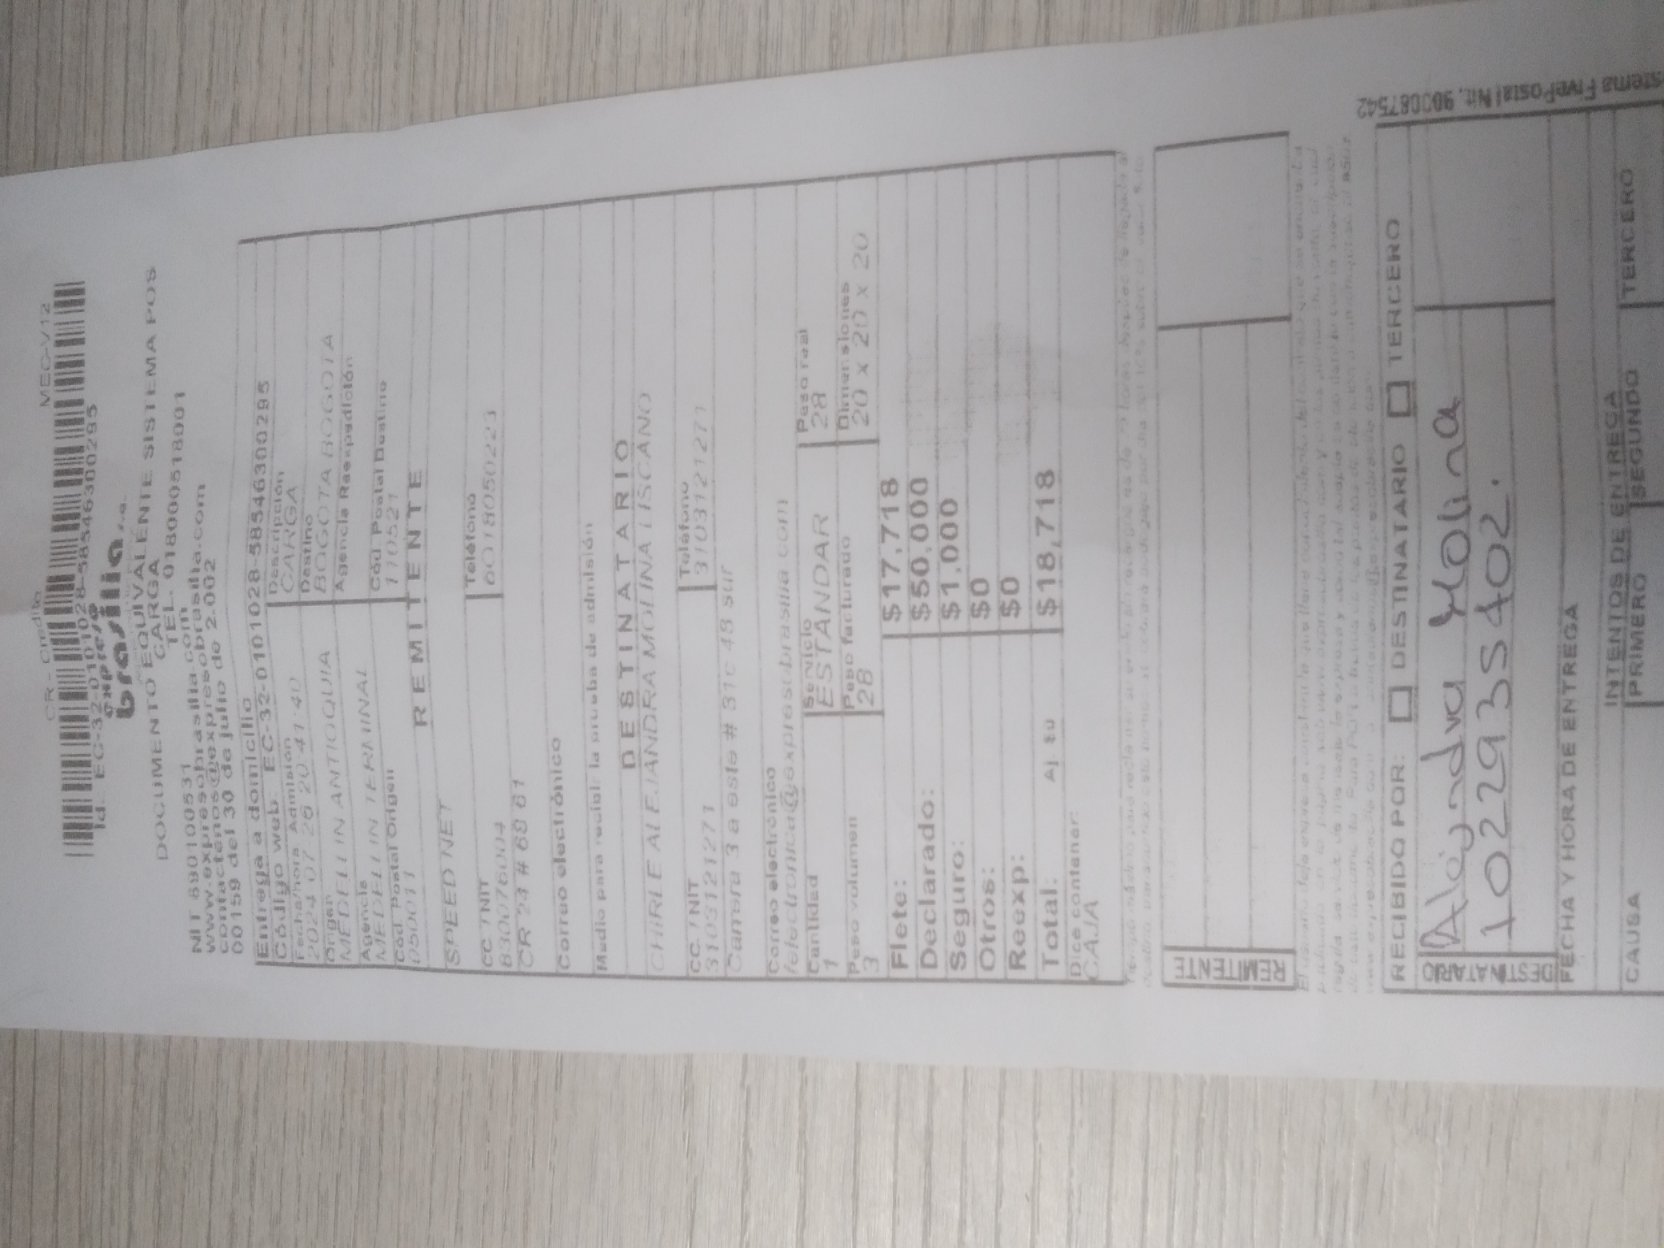 CR - Credito MEC-V12
Id. EC-32-0101028-5854630295
expreso
brasilia s.a.
DOCUMENTO EQUIVALENTE SISTEMA POS
CARGA
TEL. 018000518001
NIT 890100531
www.expresobrasilia.com
contactenos@expresobrasilia.com
00159 del 30 de julio de 2.002
Entrega a domicilio
Código web: EC-32-0101028-5854630295
Fecha/hora Admisión Descripción
2024 07 26 20:41:40 CARGA
Origen Destino
MEDELLIN ANTIOQUIA BOGOTA BOGOTA
Agencia Agencia Reexpedición
MEDELLIN TERMINAL
Cód Postal Origen Cód Postal Destino
050011 110521
REMITENTE
SPEED NET
CC / NIT Teléfono
830076004 6018050223
CR 23 # 68 61
Correo electrónico
Medio para recibir la prueba de admisión
DESTINATARIO
CHIRLE ALEJANDRA MOLINA LISCANO
CC / NIT Teléfono
3103121271 3103121271
Carrera 3 a este # 31c 48 sur
Correo electrónico
felectronica@expresobrasilia.com
Cantidad Servicio Peso real
1 ESTANDAR 28
Peso volumen Peso facturado Dimensiones
3 28 20 x 20 x 20
Flete: $17,718
Declarado: $50,000
Seguro: $1,000
Otros: $0
Reexp: $0
Total: $18,718
Dice contener:
CAJA
REMITENTE
RECIBIDO POR: DESTINATARIO TERCERO
DESTINATARIO
Alejandra Molina
1022935402.
FECHA Y HORA DE ENTREGA
INTENTOS DE ENTREGA
CAUSA PRIMERO SEGUNDO TERCERO
stema FivePostal Nit. 900087542